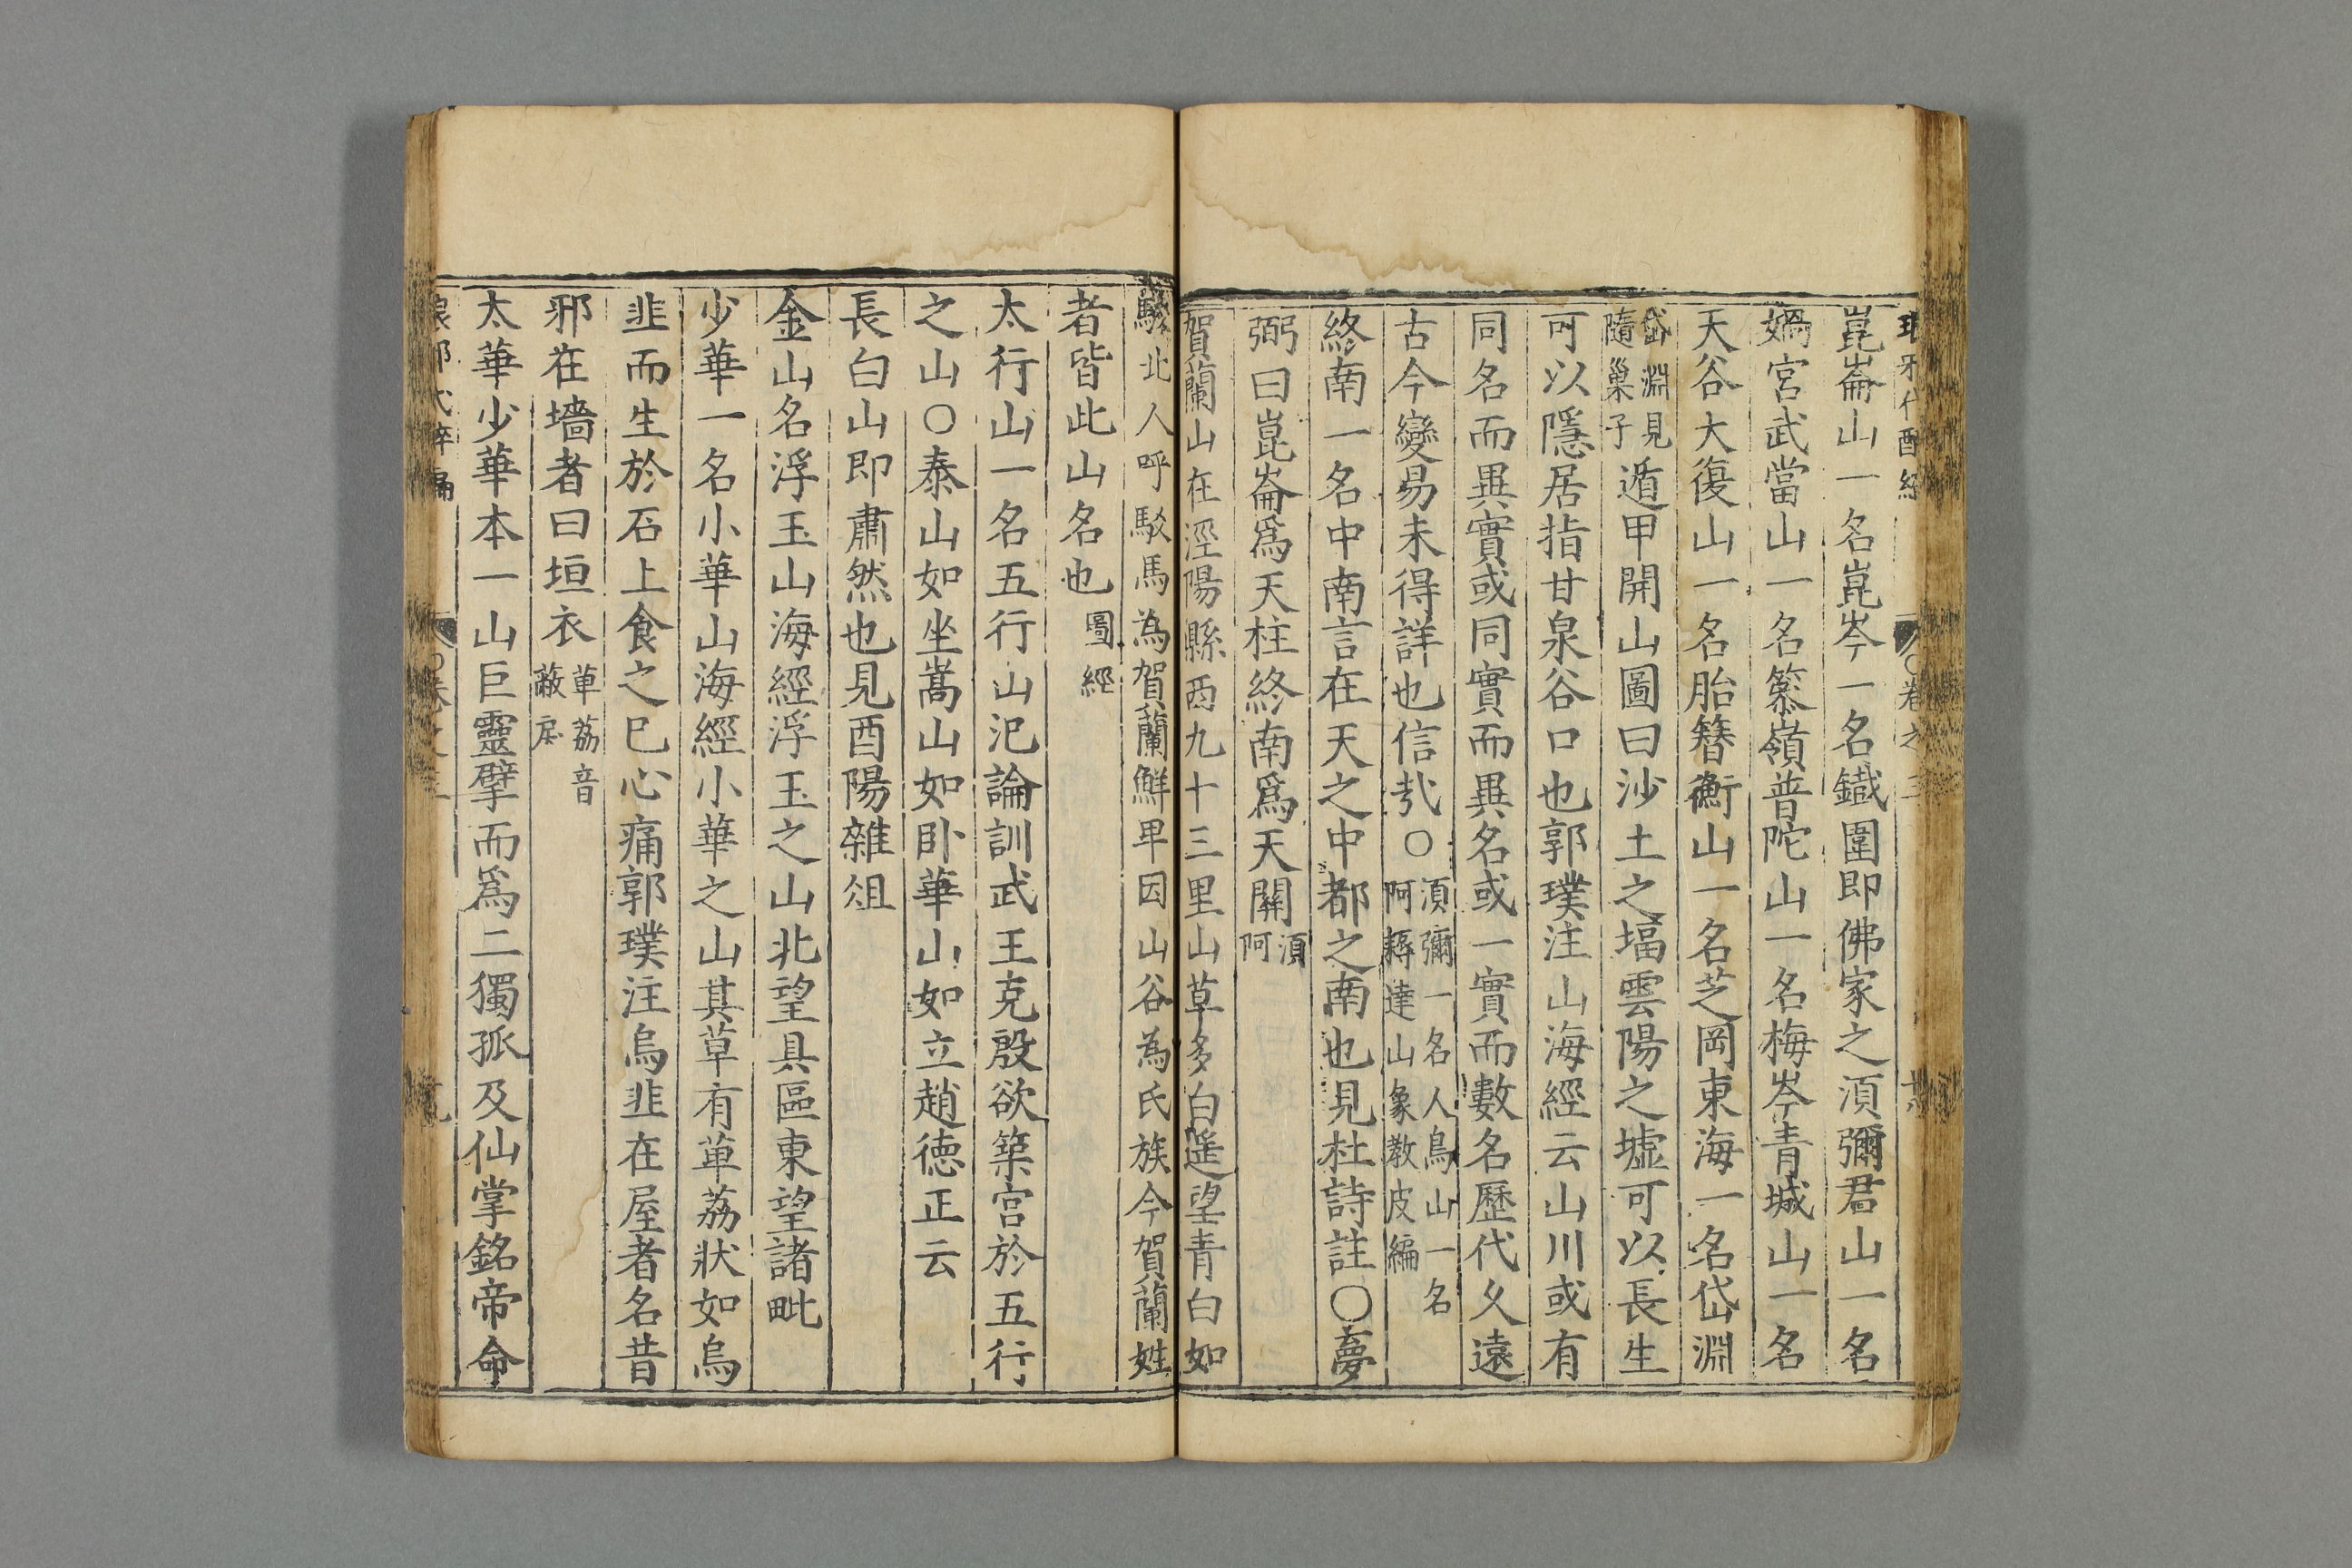 崑崙山一名崑岑一名鐵圍即佛家之湏彌君山一名
媧宮武當山一名篸嶺普陀山一名梅岑青城山一名
天谷大復山一名胎簪衡山一名芝岡東海一名岱淵
岱淵見
隨巢子
遁甲開山圖曰沙土之塥雲陽之墟可以長生
可以隱居指甘泉谷口也郭璞注山海經云山川或有
同名而異實或同實而異名或一實而數名歷代久遠
古今變易未得詳也信㢤〇
湏彌一名人鳥山一名
阿耨達山象教皮編
終南一名中南言在天之中都之南也見杜詩註〇夢
弼曰崑崙爲天柱終南爲天關
湏
阿
賀蘭山在涇陽縣西九十三里山草多白遥望青白如
駮北人呼駮馬為賀蘭鮮卑因山谷為氏族今賀蘭姓
者皆此山名也
圖經
太行山一名五行山汜論訓武王克殷欲築宫於五行
之山〇泰山如坐嵩山如卧華山如立趙徳正云
長白山即肅然也見酉陽雜俎
金山名浮玉山海經浮玉之山北望具區東望諸毗
少華一名小華山海經小華之山其草有萆荔狀如烏
韭而生於石上食之已心痛郭璞注烏韭在屋者名昔
邪在墻者曰垣衣
萆荔音
蔽戾
太華少華本一山巨靈擘而爲二獨孤及仙掌銘帝命